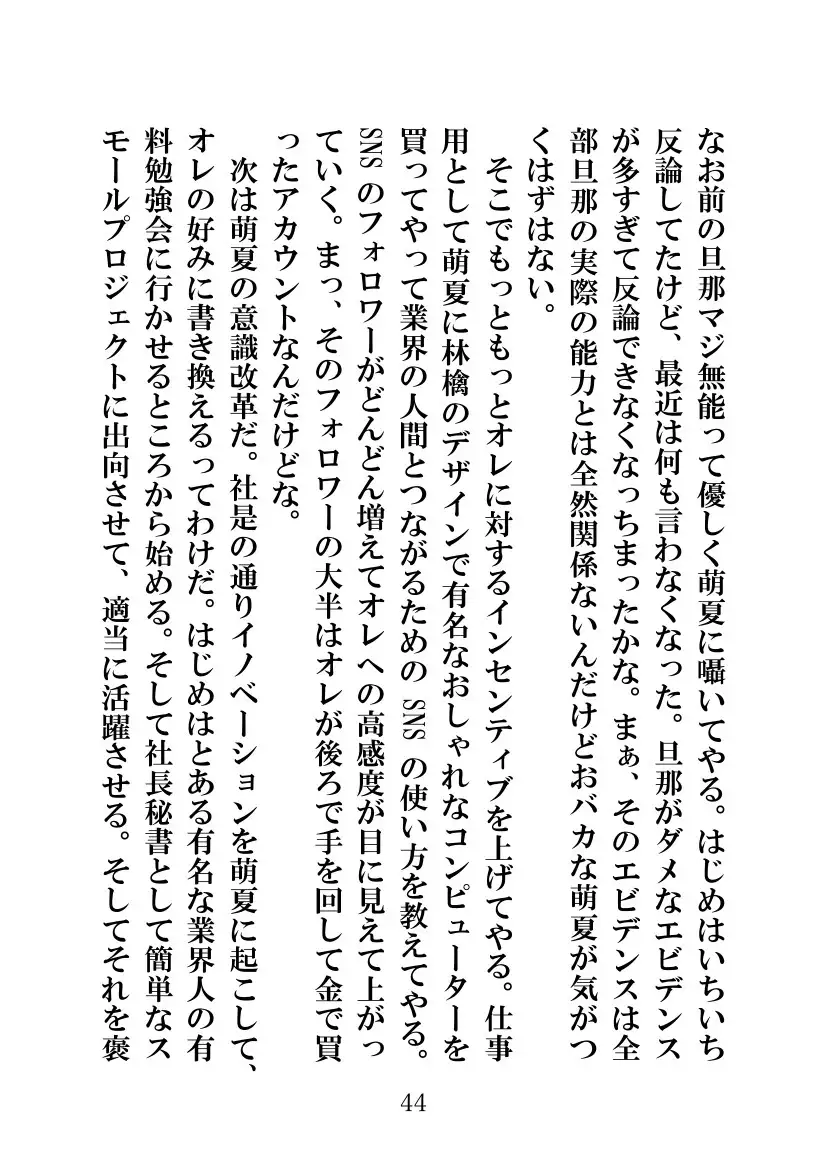 なお前の旦那マジ無能って優しく萌夏に囁いてやる。はじめはいちいち
反論してたけど、最近は何も言わなくなった。旦那がダメなエビデンス
が多すぎて反論できなくなっちまったかな。まぁ、そのエビデンスは全
部旦那の実際の能力とは全然関係ないんだけどおバカな萌夏が気がつ
くはずはない。
　そこでもっともっとオレに対するインセンティブを上げてやる。仕事
用として萌夏に林檎のデザインで有名なおしゃれなコンピューターを
買ってやって業界の人間とつながるための SNS の使い方を教えてやる。
SNS のフォロワーがどんどん増えてオレへの高感度が目に見えて上がっ
ていく。まっ、そのフォロワーの大半はオレが後ろで手を回して金で買
ったアカウントなんだけどな。
　次は萌夏の意識改革だ。社是の通りイノベーションを萌夏に起こして、
オレの好みに書き換えるってわけだ。はじめはとある有名な業界人の有
料勉強会に行かせるところから始める。そして社長秘書として簡単なス
モールプロジェクトに出向させて、適当に活躍させる。そしてそれを褒
44